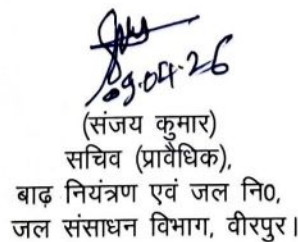 09.04.26
(संजय कुमार)
सचिव (प्रावैधिक),
बाढ़ नियंत्रण एवं जल नि0,
जल संसाधन विभाग, वीरपुर।